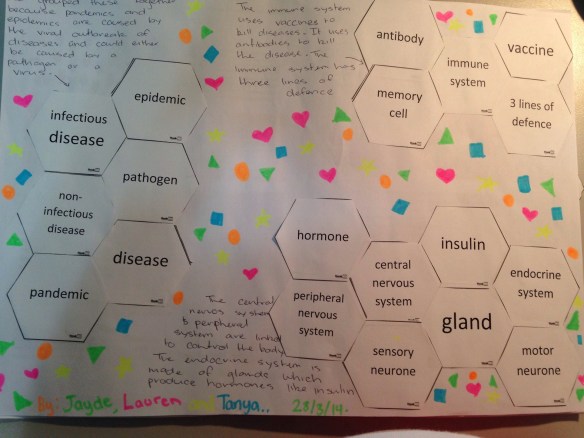 grouped these together
because pandemics and
epidemics are caused by
the viral outbreak of
diseases and could either
be caused by a
pathogen or a
virus.
The immune system
uses vaccines to
kill diseases. It uses
antibodies to kill
the disease. The
immune system has
three lines of
defence
antibody
vaccine
immune
system
memory
cell
3 lines of
defence
epidemic
infectious
disease
pathogen
non-
infectious
disease
disease
pandemic
hormone
insulin
central
nervous
system
endocrine
system
peripheral
nervous
system
gland
sensory
neurone
motor
neurone
The central
nervos system
& peripheral
system are linked
to control the body.
The endocrine system is
made of glands which
produce hormones like insulin
By: Jayde, Lauren and Tanya.. 28/3/14.